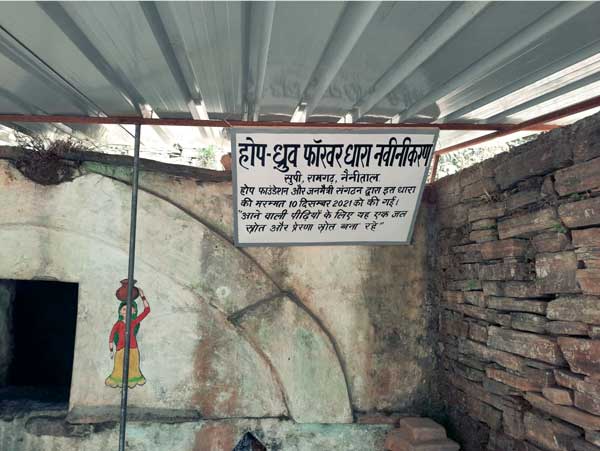 होप-ध्रुव फॉरवर धारा नवीनीकरण
सुपी, रामगढ, नैनीताल
होप फाउंडेशन और जनमैत्री संगठन द्वारा इस धारा
की मरम्मत 10 दिसम्बर 2021 को की गई।
"आने वाली पीढ़ियों के लिए यह एक जल
स्रोत और प्रेरणा स्रोत बना रहे"